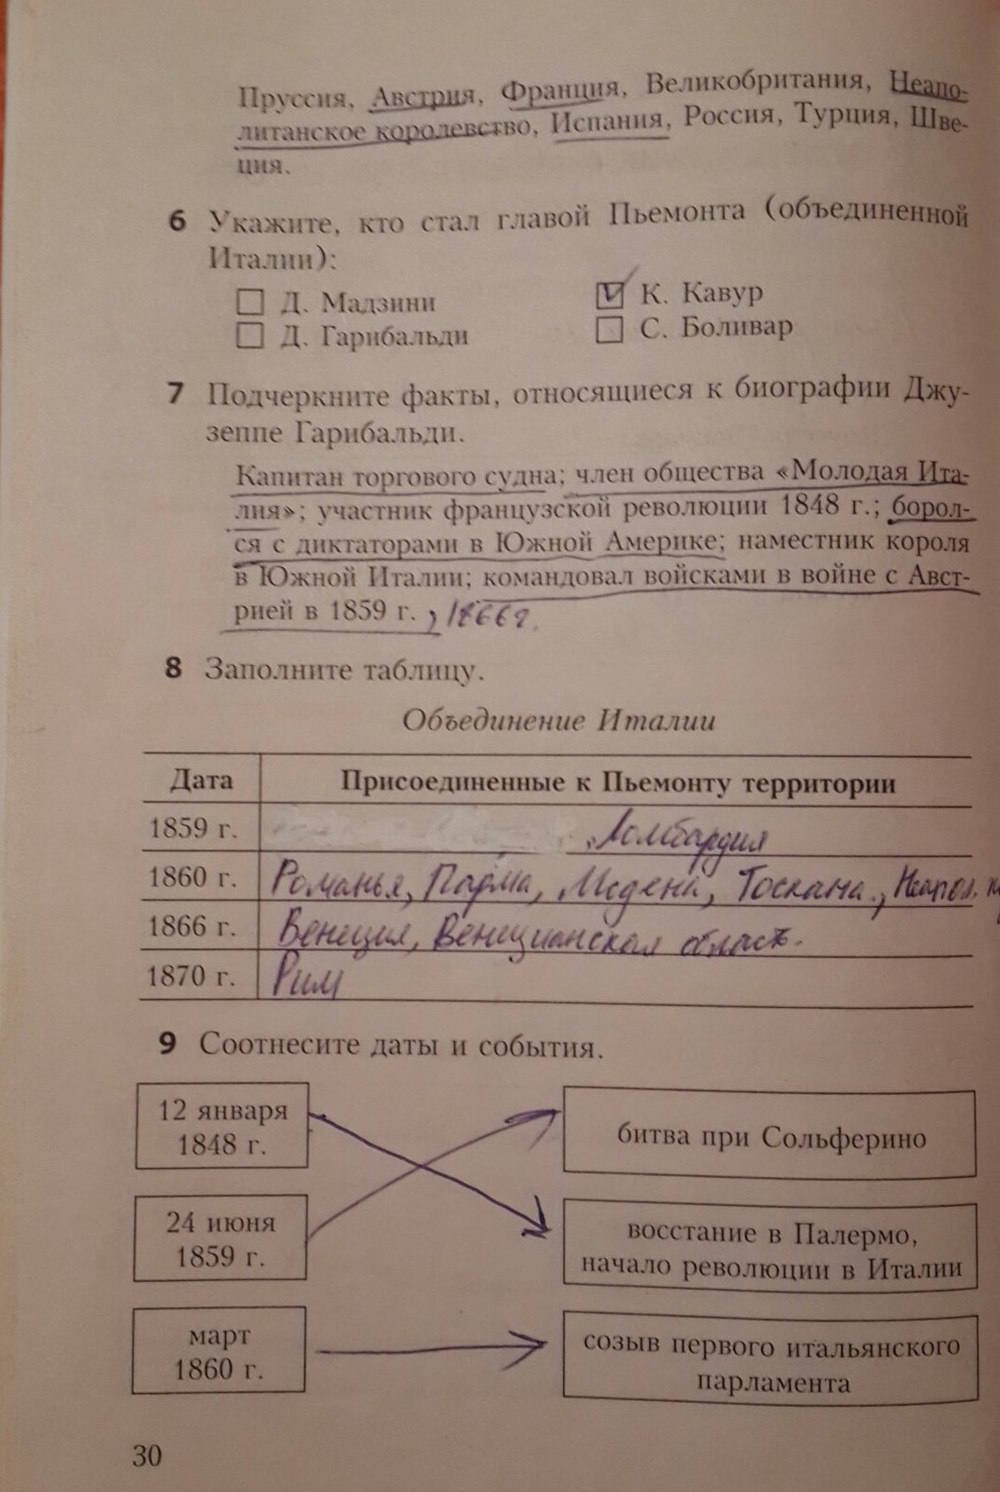 Пруссия, Австрия, Франция, Великобритания, Неапо-
литанское королевство, Испания, Россия, Турция, Шве-
ция.
6 Укажите, кто стал главой Пьемонта (объединенной
Италии):
Д. Мадзини
V К. Кавур
Д. Гарибальди
С. Боливар
7 Подчеркните факты, относящиеся к биографии Джу-
зеппе Гарибальди.
Капитан торгового судна; член общества «Молодая Ита-
лия»; участник французской революции 1848 г.; борол-
ся с диктаторами в Южной Америке; наместник короля
в Южной Италии; командовал войсками в войне с Авст-
рией в 1859 г. , 1866г.
8 Заполните таблицу.
Объединение Италии
Дата Присоединенные к Пьемонту территории
1859 г. Ломбардия
1860 г. Романья, Парма, Модена, Тоскана, Неапол.
1866 г. Венеция, Венецианская область.
1870 г. Рим
9 Соотнесите даты и события.
12 января
1848 г.
битва при Сольферино
24 июня
1859 г.
восстание в Палермо,
начало революции в Италии
март
1860 г.
созыв первого итальянского
парламента
30